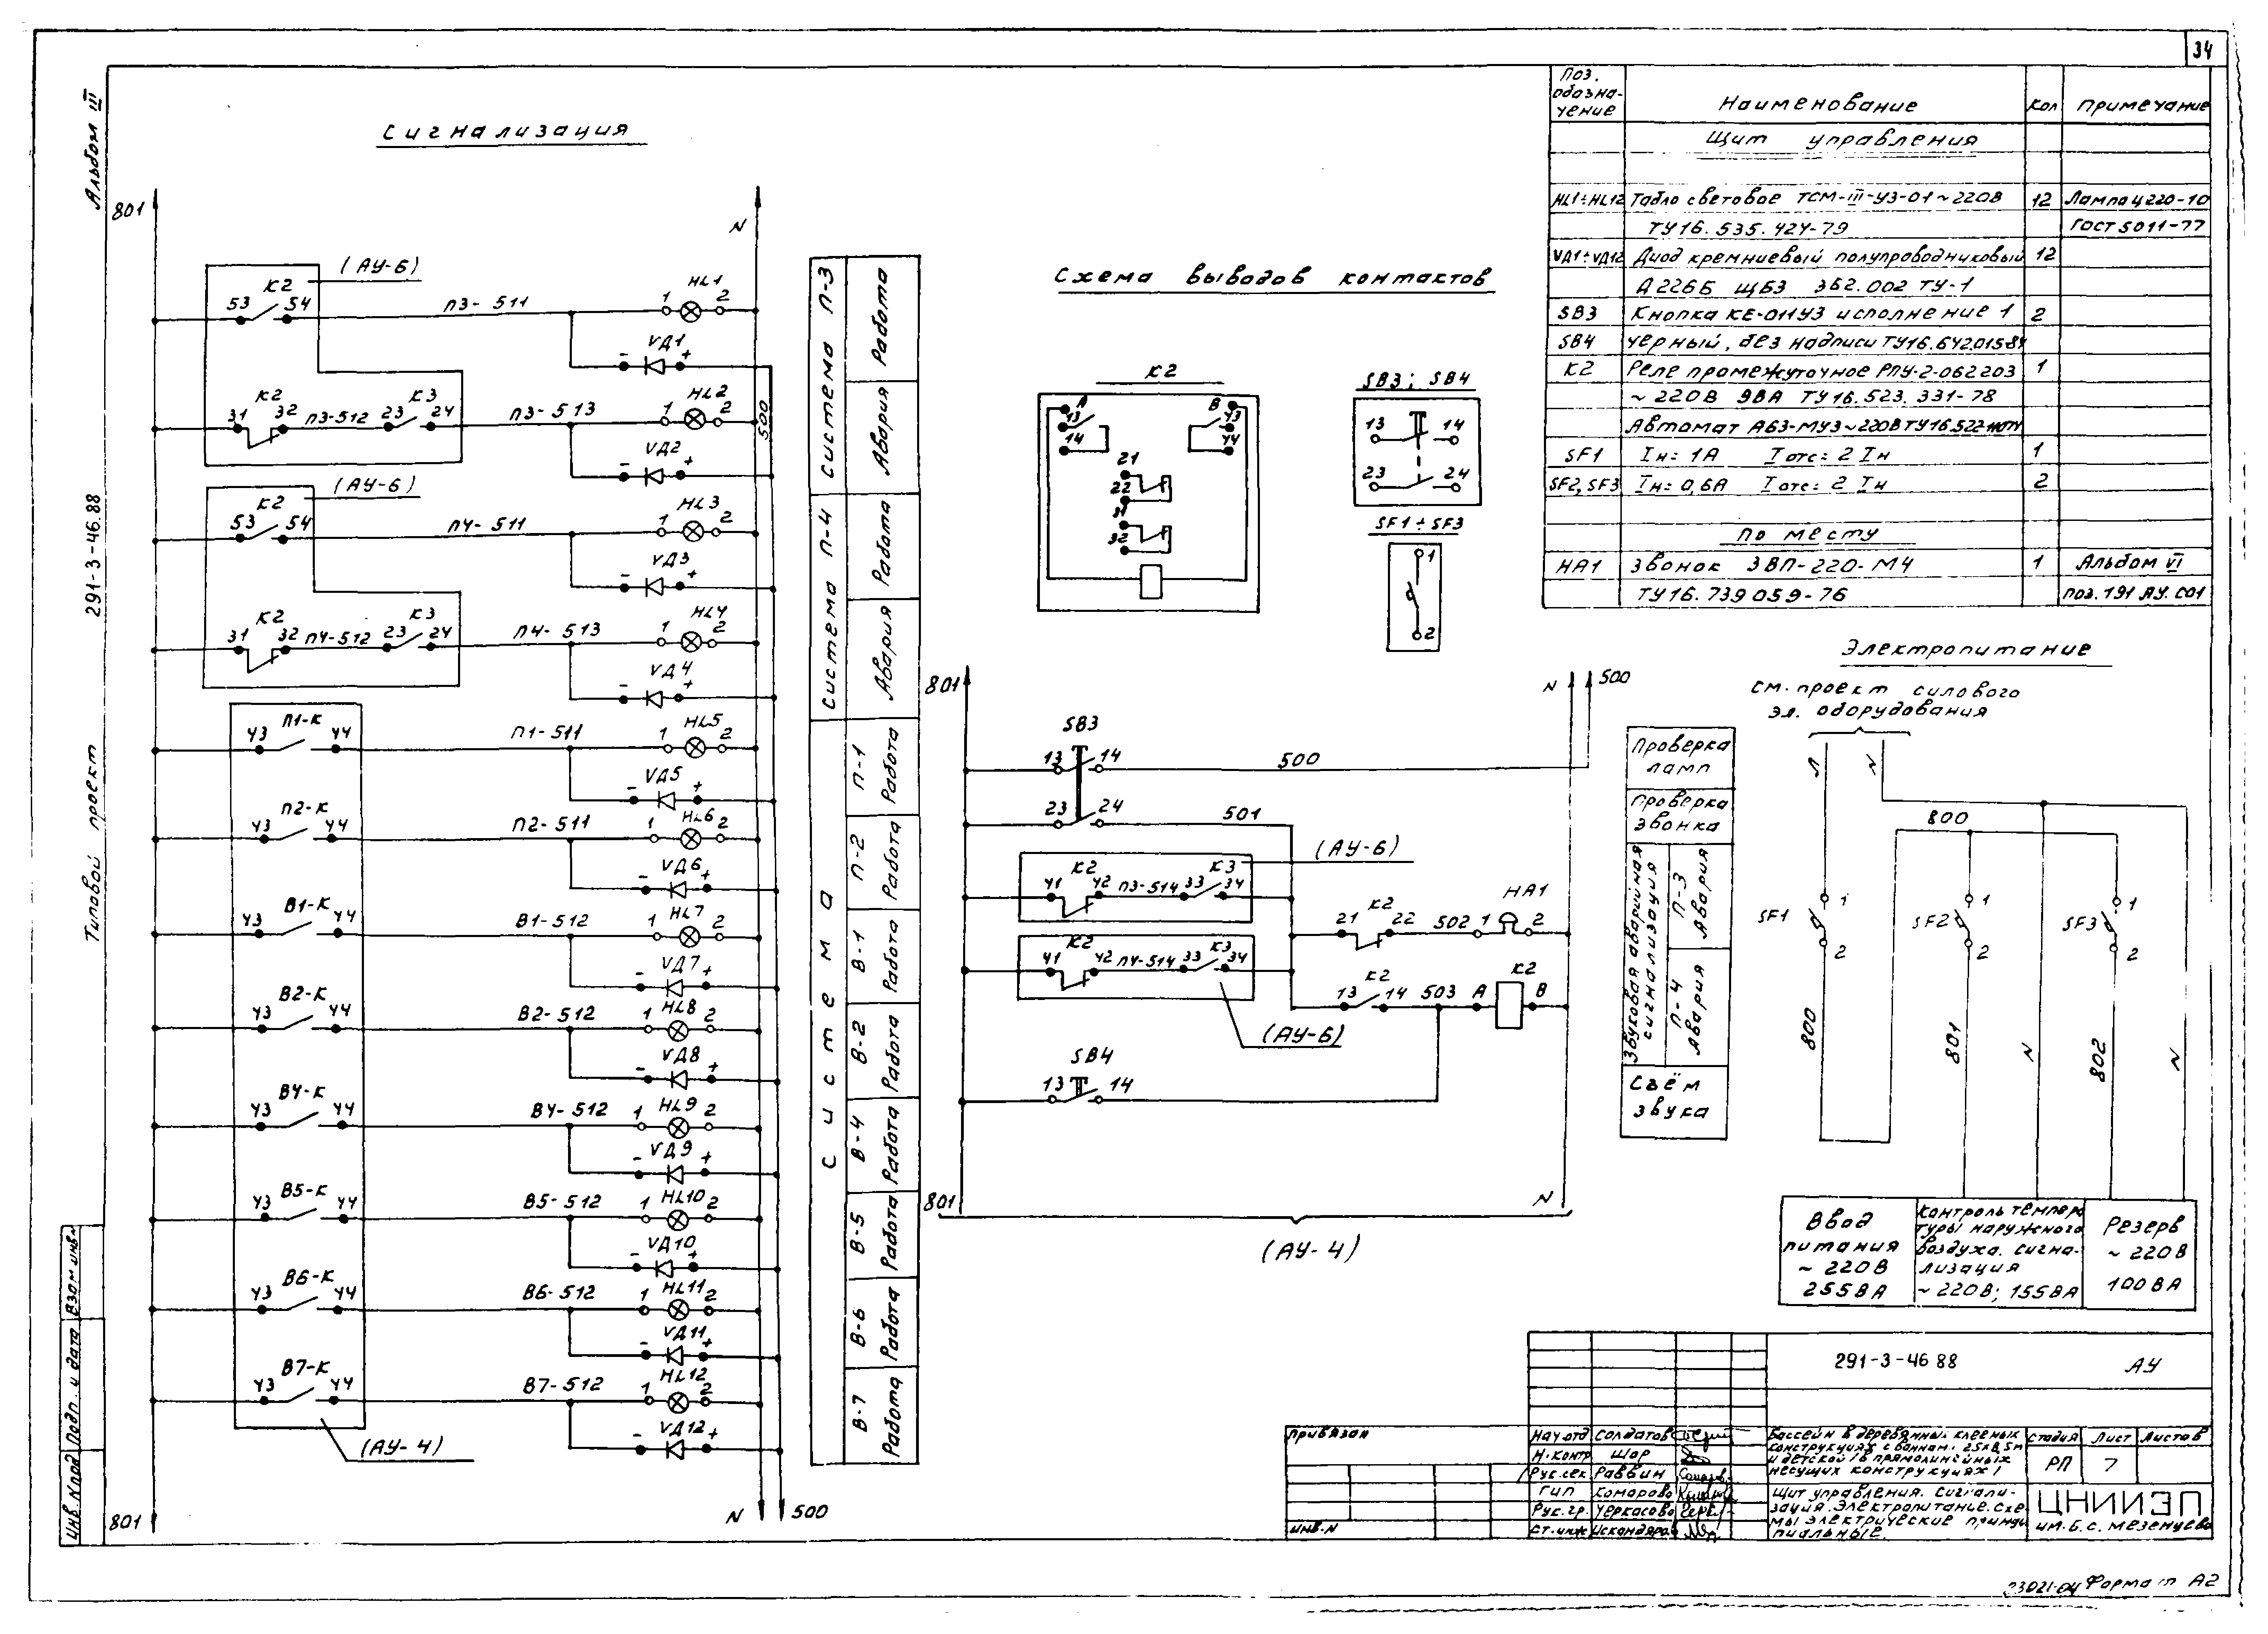 34
Альбом III
Типовой проект 291-3-46.88
Сигнализация
801
N
(АУ-6)
К2
53 54
П3-511
1 HL1 2
- VД1 +
К2 К3
31 32 П3-512 23 24
П3-513
1 HL2 2
500
- VД2 +
(АУ-6)
К2
53 54
П4-511
1 HL3 2
- VД3 +
К2 К3
31 32 П4-512 23 24
П4-513
1 HL4 2
- VД4 +
П1-К
43 44
П1-511
1 HL5 2
- VД5 +
П2-К
43 44
П2-511
1 HL6 2
- VД6 +
В1-К
43 44
В1-512
1 HL7 2
- VД7 +
В2-К
43 44
В2-512
1 HL8 2
- VД8 +
В4-К
43 44
В4-512
1 HL9 2
- VД9 +
В5-К
43 44
В5-512
1 HL10 2
- VД10 +
В6-К
43 44
В6-512
1 HL11 2
- VД11 +
В7-К
43 44
В7-512
1 HL12 2
- VД12 +
(АУ-4)
801
N 500
Система П-3
Работа
Авария
Система П-4
Работа
Авария
Система
П-1 Работа
П-2 Работа
В-1 Работа
В-2 Работа
В-4 Работа
В-5 Работа
В-6 Работа
В-7 Работа
Схема выводов контактов
К2
А В
13 43
14 44
21
22
31
32
SB3; SB4
13 14
23 24
SF1÷SF3
1
2
801
N 500
SB3
13 14
500
23 24
501
(АУ-6)
К2 К3
41 42 П3-514 33 34
К2 К3
41 42 П4-514 33 34
(АУ-6)
К2
21 22 502 1 НА1 2
К2 К2
13 14 503 А В
SB4
13 14
801
N
(АУ-4)
Проверка
ламп
Проверка
звонка
Звуковая аварийная
сигнализация
П-3
Авария
П-4
Авария
Съём
звука
Поз.
обозна-
чение
Наименование
Кол
Примечание
Щит управления
HL1÷HL12 Табло световое ТСМ-III-У3-01~220В 12 Лампа Ц220-10
ТУ16.535.424-79 ГОСТ 5011-77
VД1÷VД12 Диод кремниевый полупроводниковый 12
Д226Б ЩБ3 362.002 ТУ-1
SB3 Кнопка КЕ-011У3 исполнение 1 2
SB4 черный, без надписи ТУ16.642.015-84
К2 Реле промежуточное РПУ-2-062203 1
~220В 9ВА ТУ16.523.331-78
Автомат А63-МУ3~220В ТУ16.522
SF1 Iн=1А Iотс=2Iн 1
SF2, SF3 Iн=0,6А Iотс=2Iн 2
По месту
НА1 Звонок ЗВП-220-М4 1 Альбом VI
ТУ16.739 059-76 поз. 191 АУ.С01
Электропитание
См. проект силового
эл. оборудования
Л N
800
SF1 1 2
SF2 1 2
SF3 1 2
800
801
N
802
N
Ввод
питания
~220В
255ВА
Контроль темпера
туры наружного
воздуха. Сигна-
лизация
~220В; 155ВА
Резерв
~220В
100ВА
291-3-46 88 АУ
Привязан
Инв. N
Нач. отд Солдатов
Н. контр Шор
Рук. сек Раввин
ГИП Комарова
Рук. гр. Черкасова
Ст. инж Искандяров
Бассейн в деревянных клееных
конструкциях с ваннами 25х8,5м
и детской (в прямолинейных
несущих конструкциях)
Щит управления. Сигнали-
зация. Электропитание. Схе-
мы электрические принци
пиальные.
Стадия Лист Листов
РП 7
ЦНИИЭП
им. Б.С. Мезенцева
Инв. N подл Подп. и дата Взам инв.
23021-04 Формат А2